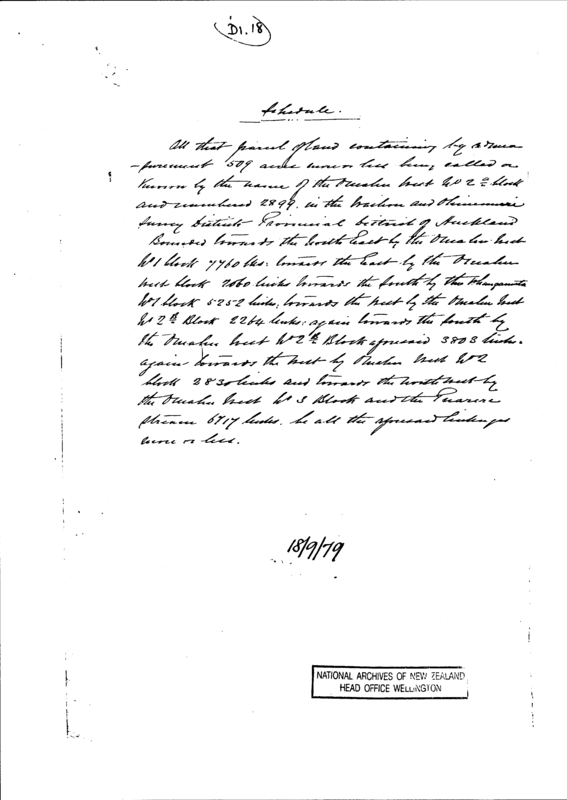 D1.18
Schedule.
All that parcel of land containing by admea
-surement 509 acres more or less being called or
known by the name of the Omahu West No 2 block
and numbered 2899. in the and
Survey Districts Provincial District of Auckland
Bounded towards the North East by the Omahu West
No 1 block 7760 lks: towards the East by the Omahu
West block 2060 links towards the South by the
No 1 block 5252 links; towards the West by the Omahu West
No 2 Block 2264 links; again towards the South by
the Omahu West No 2 Block aforesaid 3803 links.
again towards the West by Omahu West No 2
block 2830 links and towards the North West by
the Omahu West No 3 Block and the
stream 6717 links. be all the aforesaid linkages
more or less.
18/9/79
NATIONAL ARCHIVES OF NEW ZEALAND
HEAD OFFICE WELLINGTON